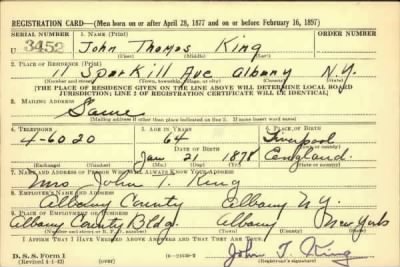 REGISTRATION CARD—(Men born on or after April 28, 1877 and on or before February 16, 1897)
SERIAL NUMBER 1. NAME (Print) ORDER NUMBER
U 3452 John Thomas King
(First) (Middle) (Last)
2. PLACE OF RESIDENCE (Print)
11 Sparkill Ave Albany N.Y.
(Number and street) (Town, township, village, or city) (County) (State)
[THE PLACE OF RESIDENCE GIVEN ON THE LINE ABOVE WILL DETERMINE LOCAL BOARD
JURISDICTION; LINE 2 OF REGISTRATION CERTIFICATE WILL BE IDENTICAL]
3. MAILING ADDRESS
Same
[Mailing address if other than place indicated on line 2. If same insert word same]
4. TELEPHONE 5. AGE IN YEARS 6. PLACE OF BIRTH
4-6020 64 Liverpool
DATE OF BIRTH (Town or county)
Jan 21 1878 England
(Exchange) (Number) (Mo.) (Day) (Yr.) (State or country)
7. NAME AND ADDRESS OF PERSON WHO WILL ALWAYS KNOW YOUR ADDRESS
Mrs John T. King
8. EMPLOYER'S NAME AND ADDRESS
Albany County Albany N.Y.
9. PLACE OF EMPLOYMENT OR BUSINESS
Albany County Bldg. Albany New York
(Number and street or R. F. D. number) (Town) (County) (State)
I AFFIRM THAT I HAVE VERIFIED ABOVE ANSWERS AND THAT THEY ARE TRUE.
D. S. S. Form 1
(Revised 4-1-42) (over) John T. King
(Registrant's signature)